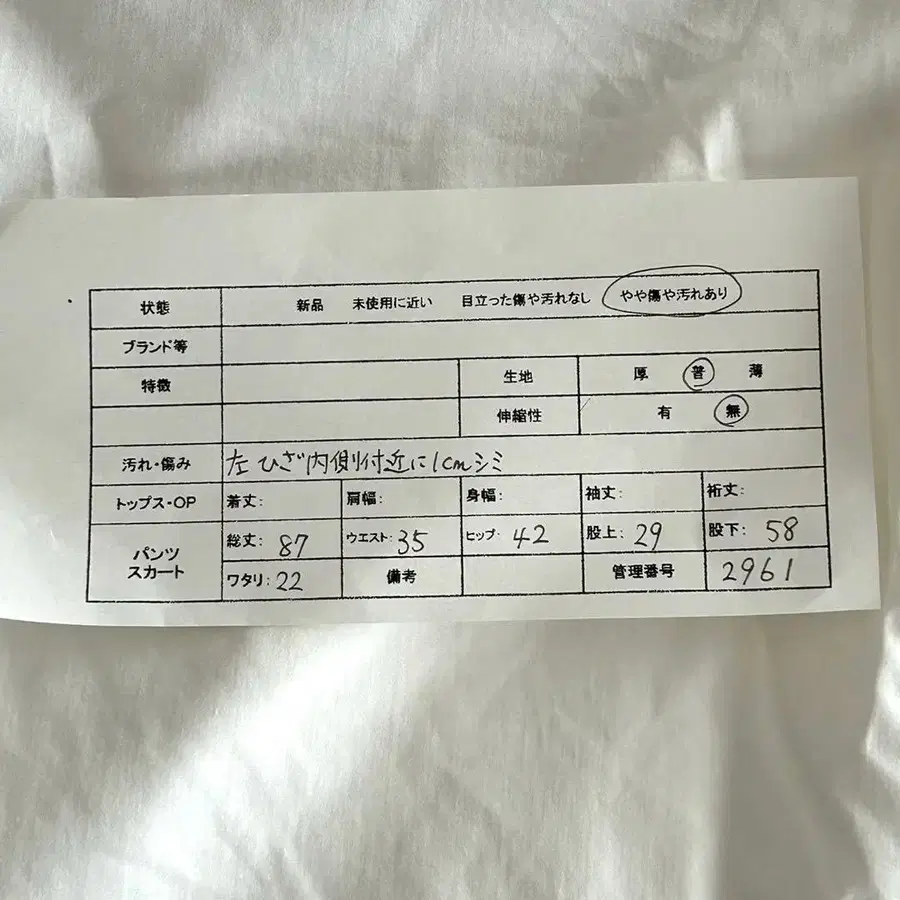 状態 新品 未使用に近い 目立った傷や汚れなし やや傷や汚れあり
ブランド等
特徴 生地 厚 普 薄
伸縮性 有 無
汚れ・傷み 左ひざ内側付近に1cmシミ
トップス・OP 着丈: 肩幅: 身幅: 袖丈: 裄丈:
パンツ スカート 総丈: 87 ウエスト: 35 ヒップ: 42 股上: 29 股下: 58
ワタリ: 22 備考 管理番号 2961